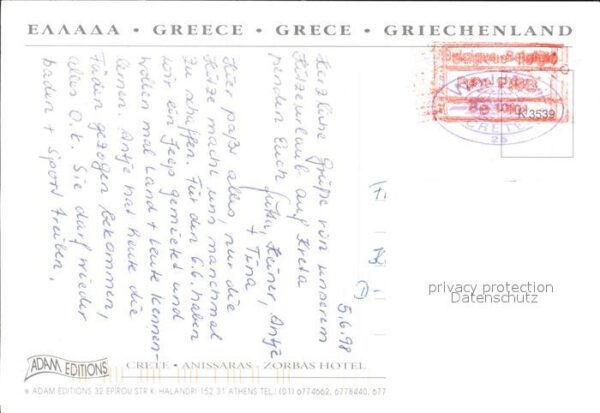 ΕΛΛΑΔΑ · GREECE · GRECE · GRIECHENLAND
5.6.98
Herzliche Grüße von unserem
Hitzeurlaub auf Kreta
senden Euch Jutta, Heiner, Antje
+ Tina
Hier paßt alles, nur die
Hitze macht uns manchmal
zu schaffen. Für den 6.6. haben
wir ein Jeep gemietet und
wollen mal Land + Leute kennen-
lernen. Antje hat heute die
Fäden gezogen bekommen,
alles O.k. Sie darf wieder
baden + Sport treiben.
K 3539
privacy protection
Datenschutz
ADAM EDITIONS
CRETE · ANISSARAS · ZORBAS HOTEL
© ADAM EDITIONS 32 EPIROU STR K. HALANDRI 152 31 ATHENS TEL.: (01) 6774662, 6778440, 677